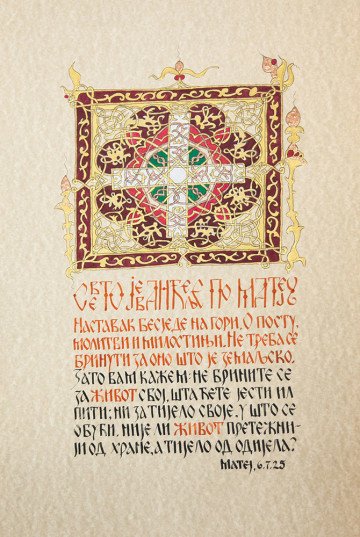 СВЕТО ЈЕВАНЂЕЉЕ ПО МАТЕЈУ
НАСТАВАК БЕСЈЕДЕ НА ГОРИ. О ПОСТУ,
МОЛИТВИ И МИЛОСТИЊИ. НЕ ТРЕБА СЕ
БРИНУТИ ЗА ОНО ШТО ЈЕ ЗЕМАЉСКО.
ЗАТО ВАМ КАЖЕМ: НЕ БРИНИТЕ СЕ
ЗА ЖИВОТ СВОЈ, ШТА ЋЕТЕ ЈЕСТИ ИЛ
ПИТИ; НИ ЗА ТИЈЕЛО СВОЈЕ, У ШТО СЕ
ОБУЋИ. НИЈЕ ЛИ ЖИВОТ ПРЕТЕЖНИ-
ЈИ ОД ХРАНЕ, А ТИЈЕЛО ОД ОДИЈЕЛА?
МАТЕЈ, 6.7.25